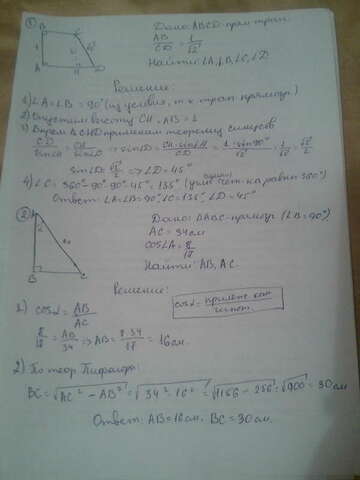 ① Дано: ABCD-прям. трап.
AB/CD = 1/√2
Найти: ∠A, ∠B, ∠C, ∠D
Решение:
1) ∠A = ∠B = 90° (из условия, т.к трап. прямоуг.)
2) Опустим высоту CH = AB = 1
3) В прям. Δ CHD применим теорему синусов
CD/sin90 = CH/sinD => sinD = CH·sin∠H/CD = 1·sin90°/√2 = 1/√2 = √2/2
sin∠D: √2/2 => ∠D = 45°
4) ∠C = 360° - 90° - 90° - 45° = 135° (сумма углов чет-ка равна 360°)
Ответ: ∠A = ∠B = 90°, ∠C = 135°, ∠D = 45°
② Дано: ΔABC-прямоуг. (∠B = 90°)
AC = 34 см
cos∠A = 8/17
Найти: AB, AC.
Решение:
1) cosα = AB/AC
cosα = прилежс. кат./гипот.
8/17 = AB/34 => AB = 8·34/17 = 16 см.
2) По теор. Пифагора:
BC = √AC² - AB² = √34² - 16² = √1156 - 256 = √900 = 30 см
Ответ: AB = 16 см, BC = 30 см.